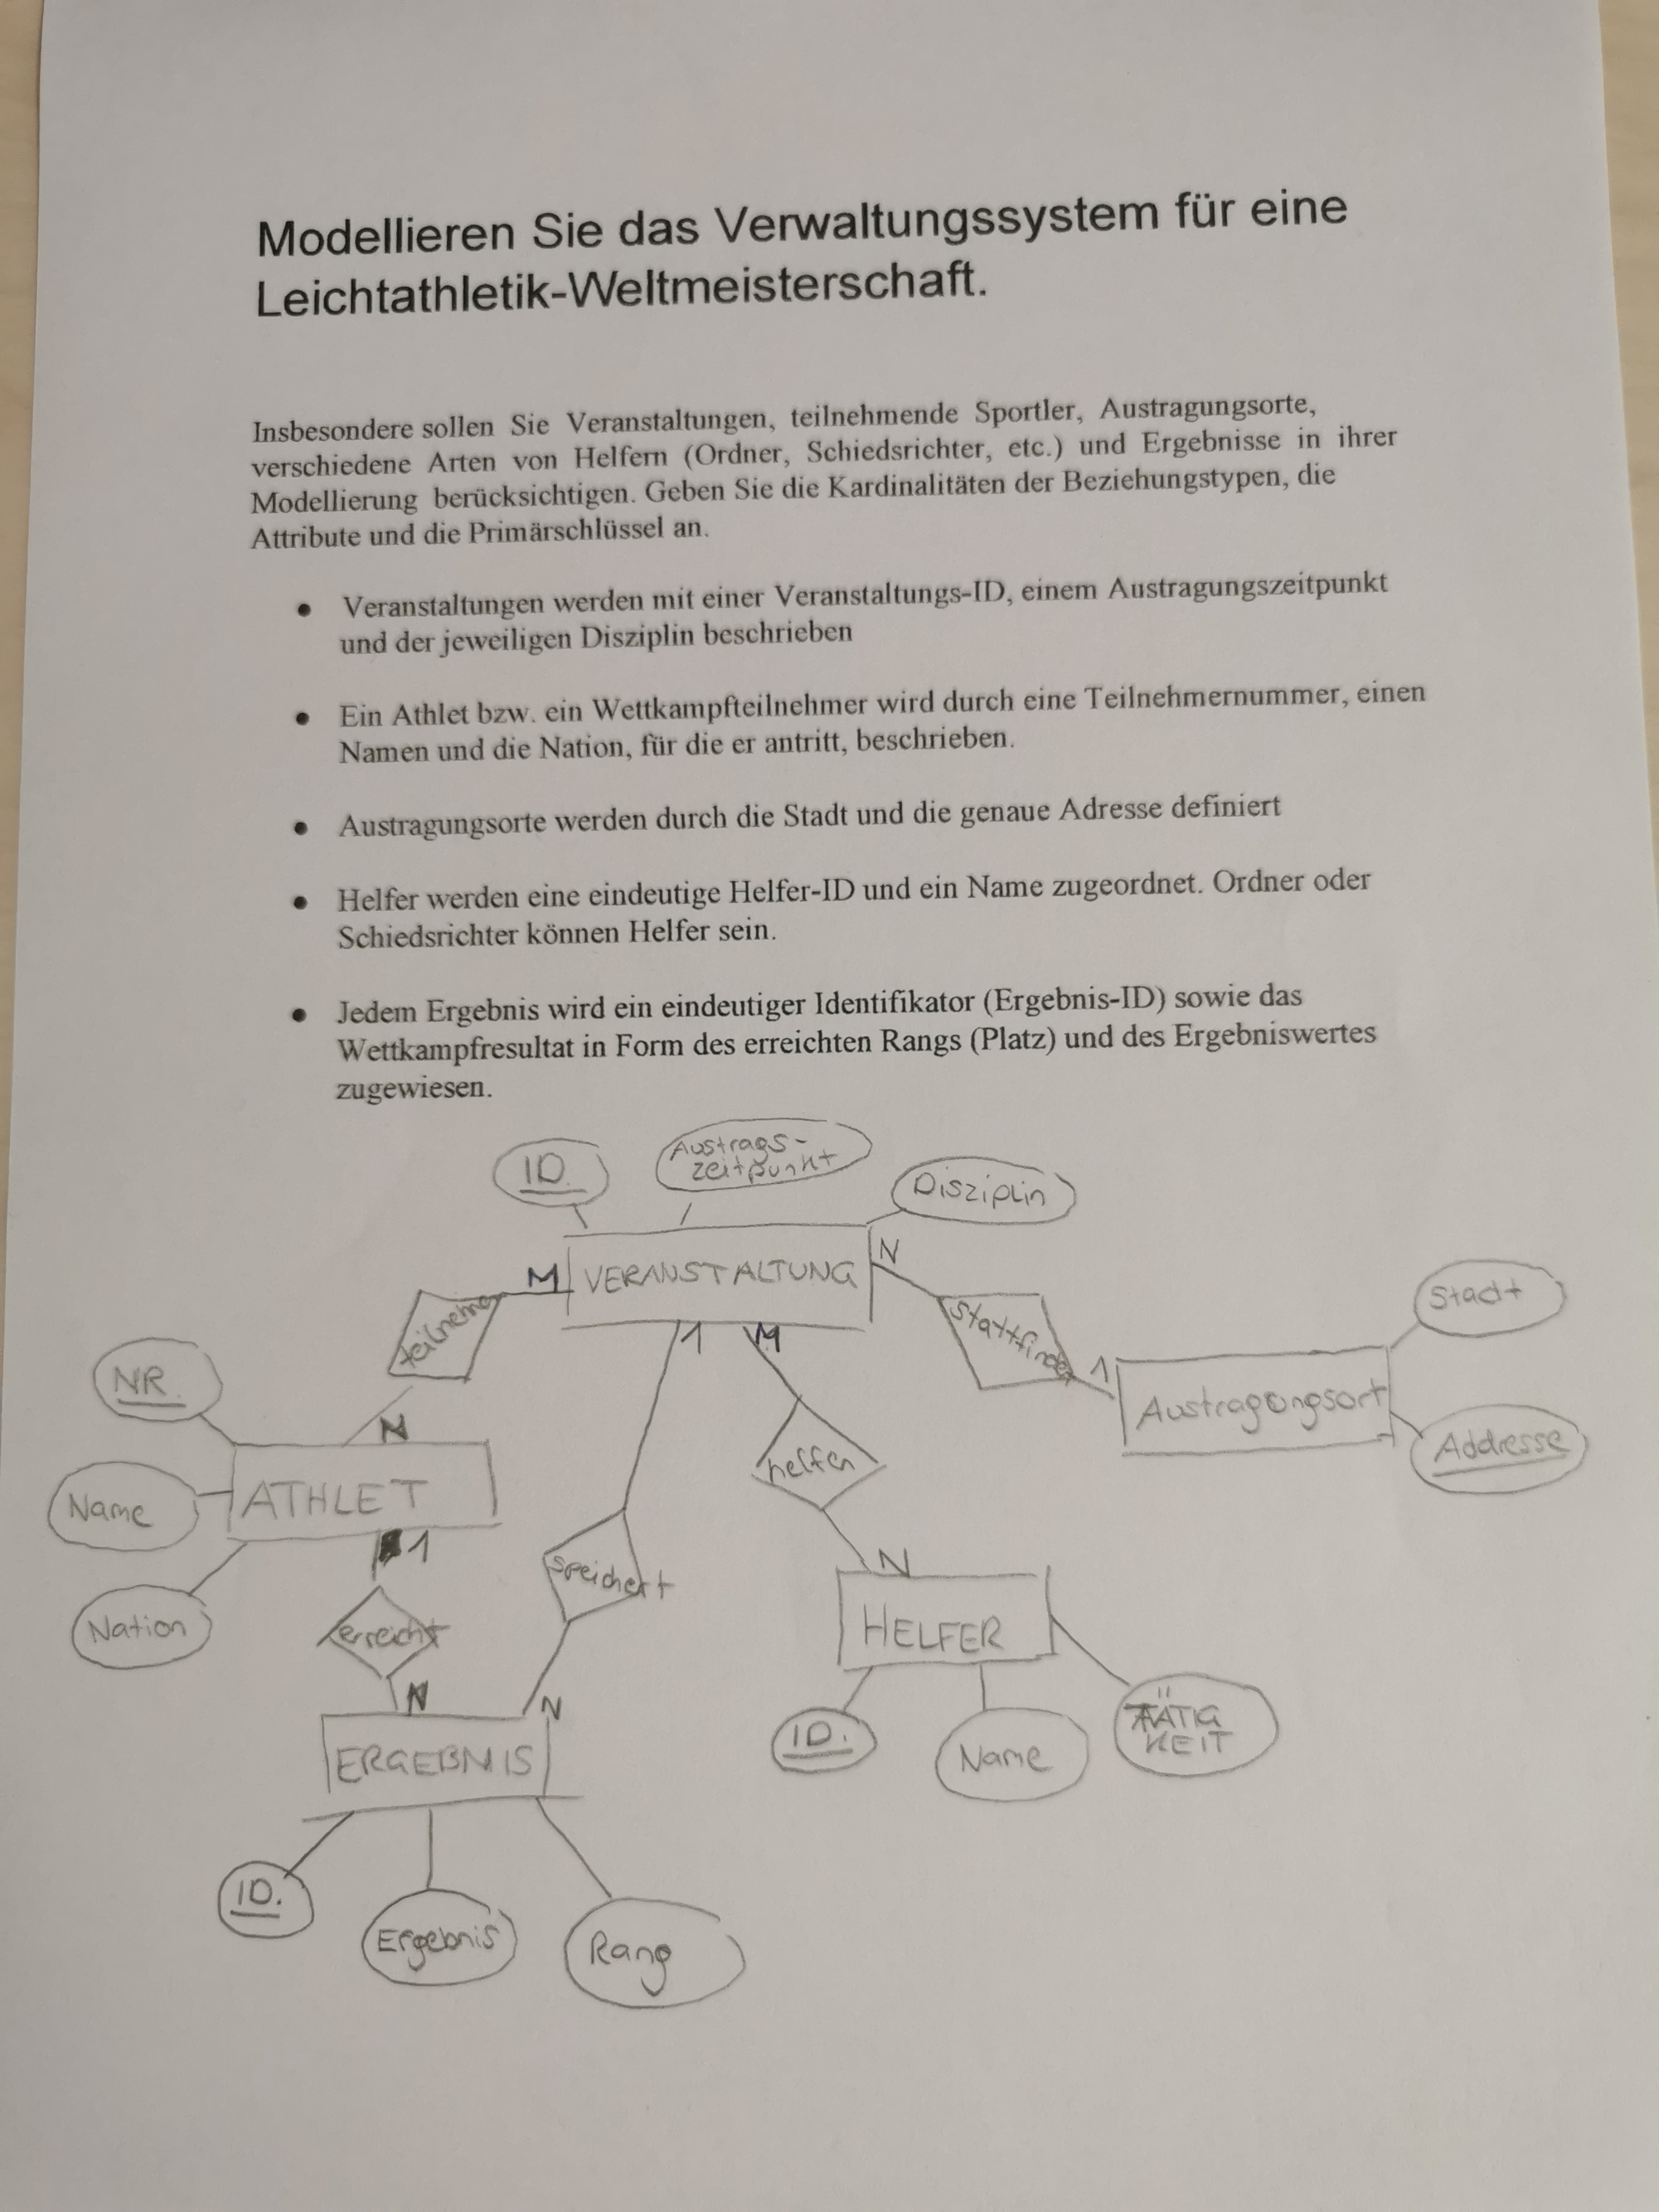 Modellieren Sie das Verwaltungssystem für eine
Leichtathletik-Weltmeisterschaft.
Insbesondere sollen Sie Veranstaltungen, teilnehmende Sportler, Austragungsorte,
verschiedene Arten von Helfern (Ordner, Schiedsrichter, etc.) und Ergebnisse in ihrer
Modellierung berücksichtigen. Geben Sie die Kardinalitäten der Beziehungstypen, die
Attribute und die Primärschlüssel an.
• Veranstaltungen werden mit einer Veranstaltungs-ID, einem Austragungszeitpunkt
und der jeweiligen Disziplin beschrieben
• Ein Athlet bzw. ein Wettkampfteilnehmer wird durch eine Teilnehmernummer, einen
Namen und die Nation, für die er antritt, beschrieben.
• Austragungsorte werden durch die Stadt und die genaue Adresse definiert
• Helfer werden eine eindeutige Helfer-ID und ein Name zugeordnet. Ordner oder
Schiedsrichter können Helfer sein.
• Jedem Ergebnis wird ein eindeutiger Identifikator (Ergebnis-ID) sowie das
Wettkampfresultat in Form des erreichten Rangs (Platz) und des Ergebniswertes
zugewiesen.
ID.
Austrags-
zeitpunkt
Disziplin
M
VERANSTALTUNG
N
teilnehmen
stattfinden
Stadt
1
M
1
Austragungsort
Addresse
NR.
N
helfen
Name
ATHLET
1
speichert
N
Nation
erreicht
HELFER
N
N
ID.
Name
TÄTIG
KEIT
ERGEBNIS
ID.
Ergebnis
Rang